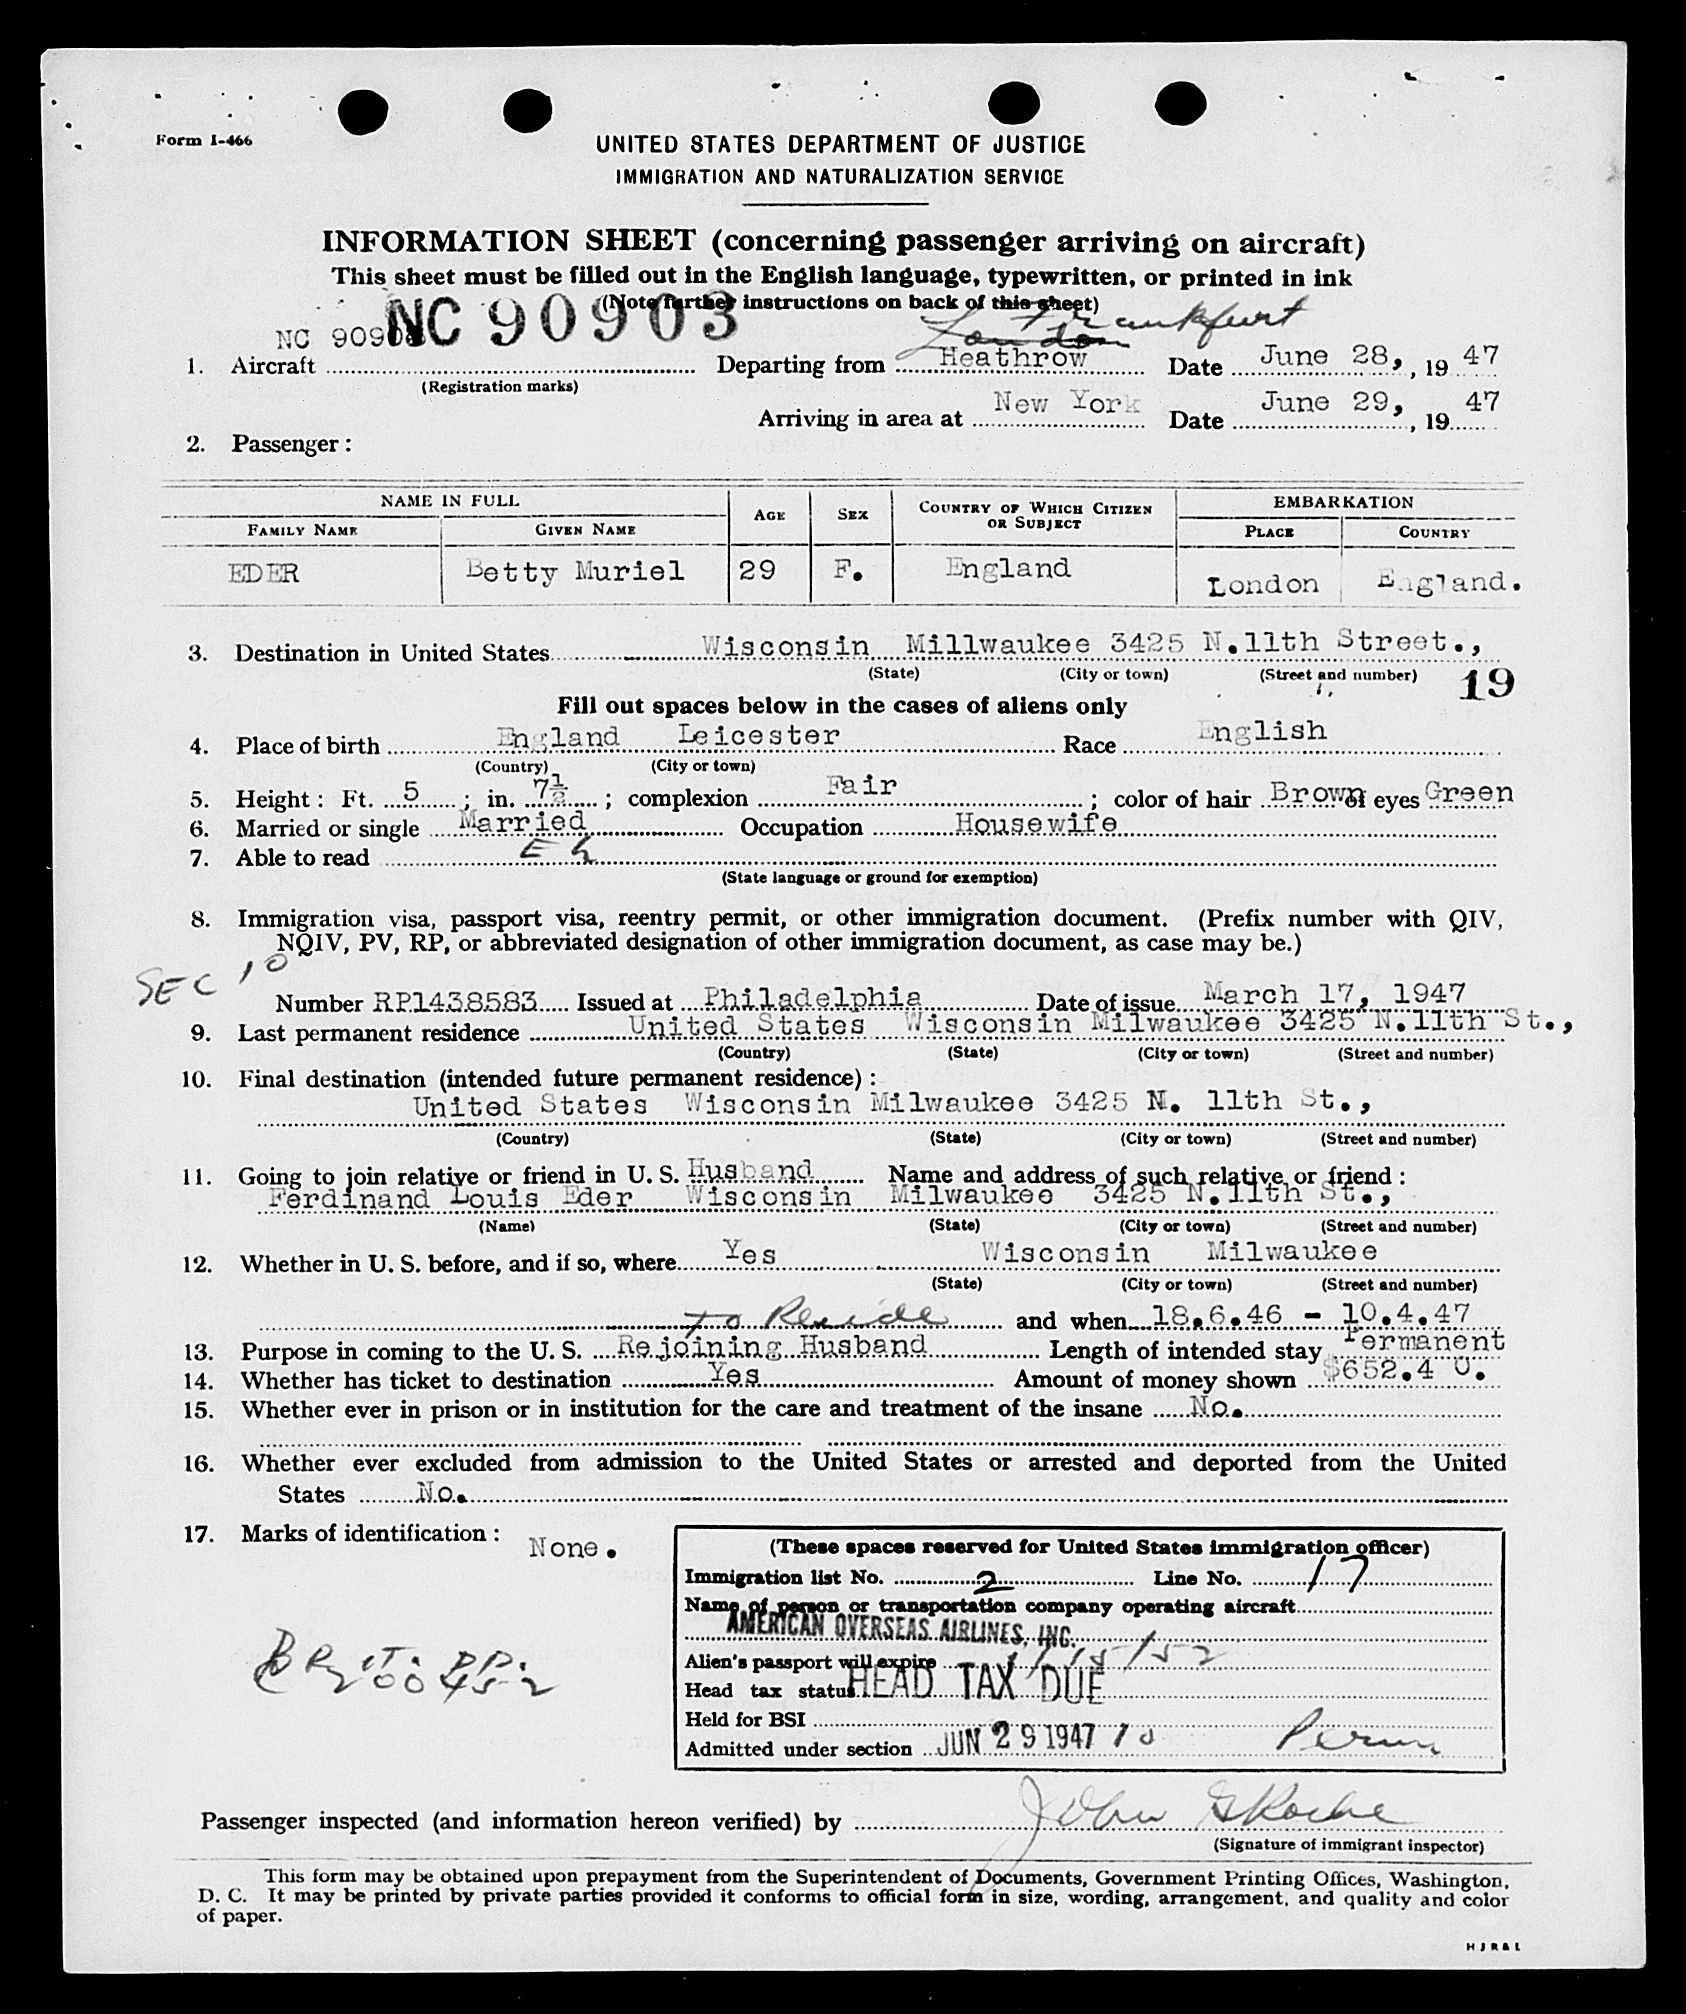 Form I-466
UNITED STATES DEPARTMENT OF JUSTICE
IMMIGRATION AND NATURALIZATION SERVICE
INFORMATION SHEET (concerning passenger arriving on aircraft)
This sheet must be filled out in the English language, typewritten, or printed in ink
(Note further instructions on back of this sheet)
NC 90903 NC 90903 London Frankfurt
1. Aircraft Departing from Heathrow Date June 28, , 19 47
(Registration marks)
Arriving in area at New York Date June 29, , 19 47
2. Passenger :
NAME IN FULL AGE SEX COUNTRY OF WHICH CITIZEN OR SUBJECT EMBARKATION
FAMILY NAME GIVEN NAME PLACE COUNTRY
EDER Betty Muriel 29 F. England London England.
3. Destination in United States Wisconsin Millwaukee 3425 N.11th Street.,
(State) (City or town) (Street and number) 19
Fill out spaces below in the cases of aliens only
4. Place of birth England Leicester Race English
(Country) (City or town)
5. Height : Ft. 5 ; in. 7½ ; complexion Fair ; color of hair Brown of eyes Green
6. Married or single Married Occupation Housewife
7. Able to read
(State language or ground for exemption)
8. Immigration visa, passport visa, reentry permit, or other immigration document. (Prefix number with QIV,
NQIV, PV, RP, or abbreviated designation of other immigration document, as case may be.)
SEC 10
Number RP1438583 Issued at Philadelphia Date of issue March 17, 1947
9. Last permanent residence United States Wisconsin Milwaukee 3425 N.11th St.,
(Country) (State) (City or town) (Street and number)
10. Final destination (intended future permanent residence) :
United States Wisconsin Milwaukee 3425 N. 11th St.,
(Country) (State) (City or town) (Street and number)
11. Going to join relative or friend in U. S. Husband Name and address of such relative or friend :
Ferdinand Louis Eder Wisconsin Milwaukee 3425 N.11th St.,
(Name) (State) (City or town) (Street and number)
12. Whether in U. S. before, and if so, where Yes Wisconsin Milwaukee
(State) (City or town) (Street and number)
To Reside and when 18.6.46 - 10.4.47
13. Purpose in coming to the U. S. Rejoining Husband Length of intended stay Permanent
14. Whether has ticket to destination Yes Amount of money shown $652.4 0.
15. Whether ever in prison or in institution for the care and treatment of the insane No.
16. Whether ever excluded from admission to the United States or arrested and deported from the United
States No.
17. Marks of identification : None.
(These spaces reserved for United States immigration officer)
Immigration list No. 2 Line No. 17
Name of person or transportation company operating aircraft
AMERICAN OVERSEAS AIRLINES, INC.
Alien's passport will expire 1/15/52
Head tax status HEAD TAX DUE
Held for BSI
Admitted under section JUN 29 1947 10 Perm
Passenger inspected (and information hereon verified) by John
(Signature of immigrant inspector)
This form may be obtained upon prepayment from the Superintendent of Documents, Government Printing Offices, Washington,
D. C. It may be printed by private parties provided it conforms to official form in size, wording, arrangement, and quality and color
of paper.
H J R & L